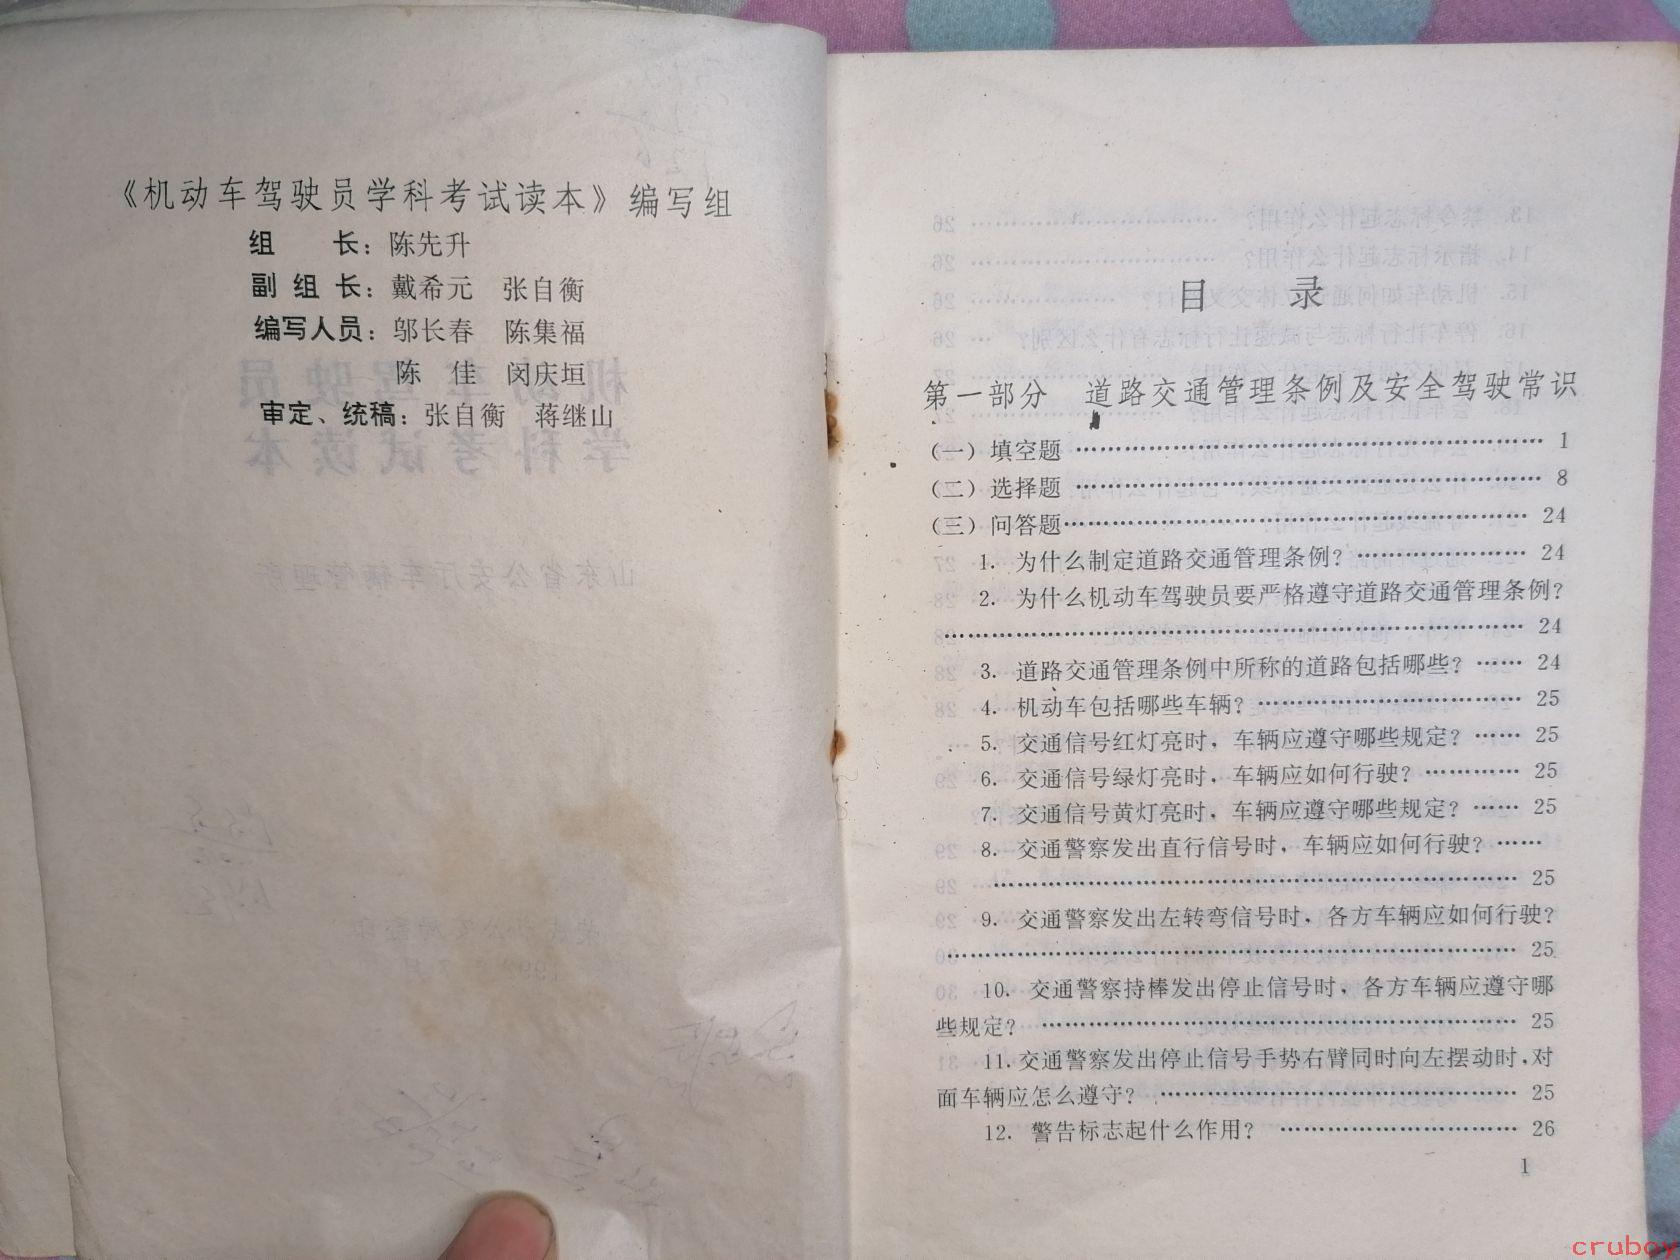 《机动车驾驶员学科考试读本》编写组
组　　长：陈先升
副 组 长：戴希元　张自衡
编写人员：邬长春　陈集福
陈　佳　闵庆垣
审定、统稿：张自衡　蒋继山
目　　录
第一部分　道路交通管理条例及安全驾驶常识
（一）填空题 …………………………………………… 1
（二）选择题 …………………………………………… 8
（三）问答题 …………………………………………… 24
1. 为什么制定道路交通管理条例？ ………………… 24
2. 为什么机动车驾驶员要严格遵守道路交通管理条例？
…………………………………………………………… 24
3. 道路交通管理条例中所称的道路包括哪些？ …… 24
4. 机动车包括哪些车辆？ …………………………… 25
5. 交通信号红灯亮时，车辆应遵守哪些规定？ …… 25
6. 交通信号绿灯亮时，车辆应如何行驶？ ………… 25
7. 交通信号黄灯亮时，车辆应遵守哪些规定？ …… 25
8. 交通警察发出直行信号时，车辆应如何行驶？ ……
………………………………………………………… 25
9. 交通警察发出左转弯信号时，各方车辆应如何行驶？
…………………………………………………………… 25
10. 交通警察持棒发出停止信号时，各方车辆应遵守哪
些规定？ ……………………………………………… 25
11. 交通警察发出停止信号手势右臂同时向左摆动时，对
面车辆应怎么遵守？ ………………………………… 25
12. 警告标志起什么作用？ ………………………… 26
1
cruboy